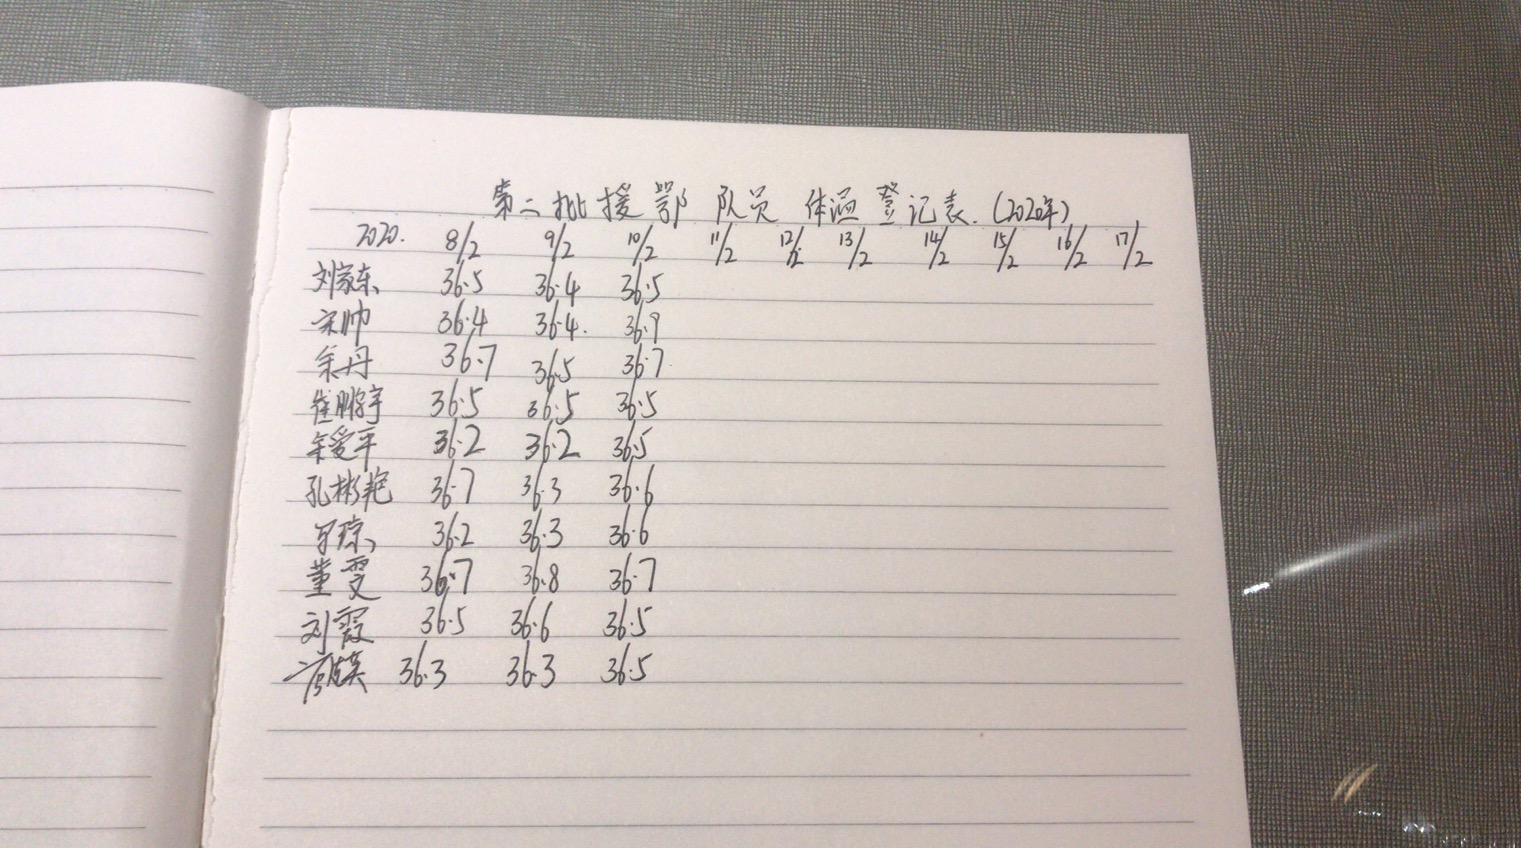 第二批援鄂队员体温登记表.(2020年)
2020. 8/2 9/2 10/2 11/2 12/2 13/2 14/2 15/2 16/2 17/2
刘家东 36.5 36.4 36.5
宋帅 36.4 36.4. 36.9
余丹 36.7 36.5 36.7
崔鹏宇 36.5 36.5 36.5
余爱平 36.2 36.2 36.5
孔彬艳 36.7 36.3 36.6
琼 36.2 36.3 36.6
董雯 36.7 36.8 36.7
刘霞 36.5 36.6 36.5
36.3 36.3 36.5